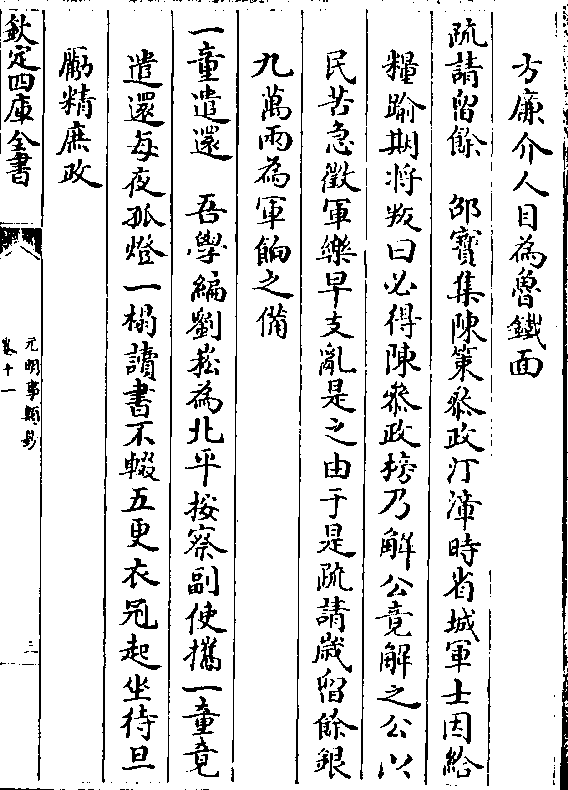 方廉介人目為魯鐵面
疏請留餘　邵寶集陳策叅政汀漳時省城軍士因給
糧踰期将叛曰必得陳叅政榜乃解公竟解之公以
民苦急徵軍樂早支亂是之由于是疏請歲留餘銀
九萬兩為軍餉之備
一童遣還　吾學編劉崧為北平按察副使攜一童竟
遣還每夜孤燈一榻讀書不輟五更衣冠起坐待旦
勵精庶政
欽定四庫全書
元明事類鈔
卷十一
三